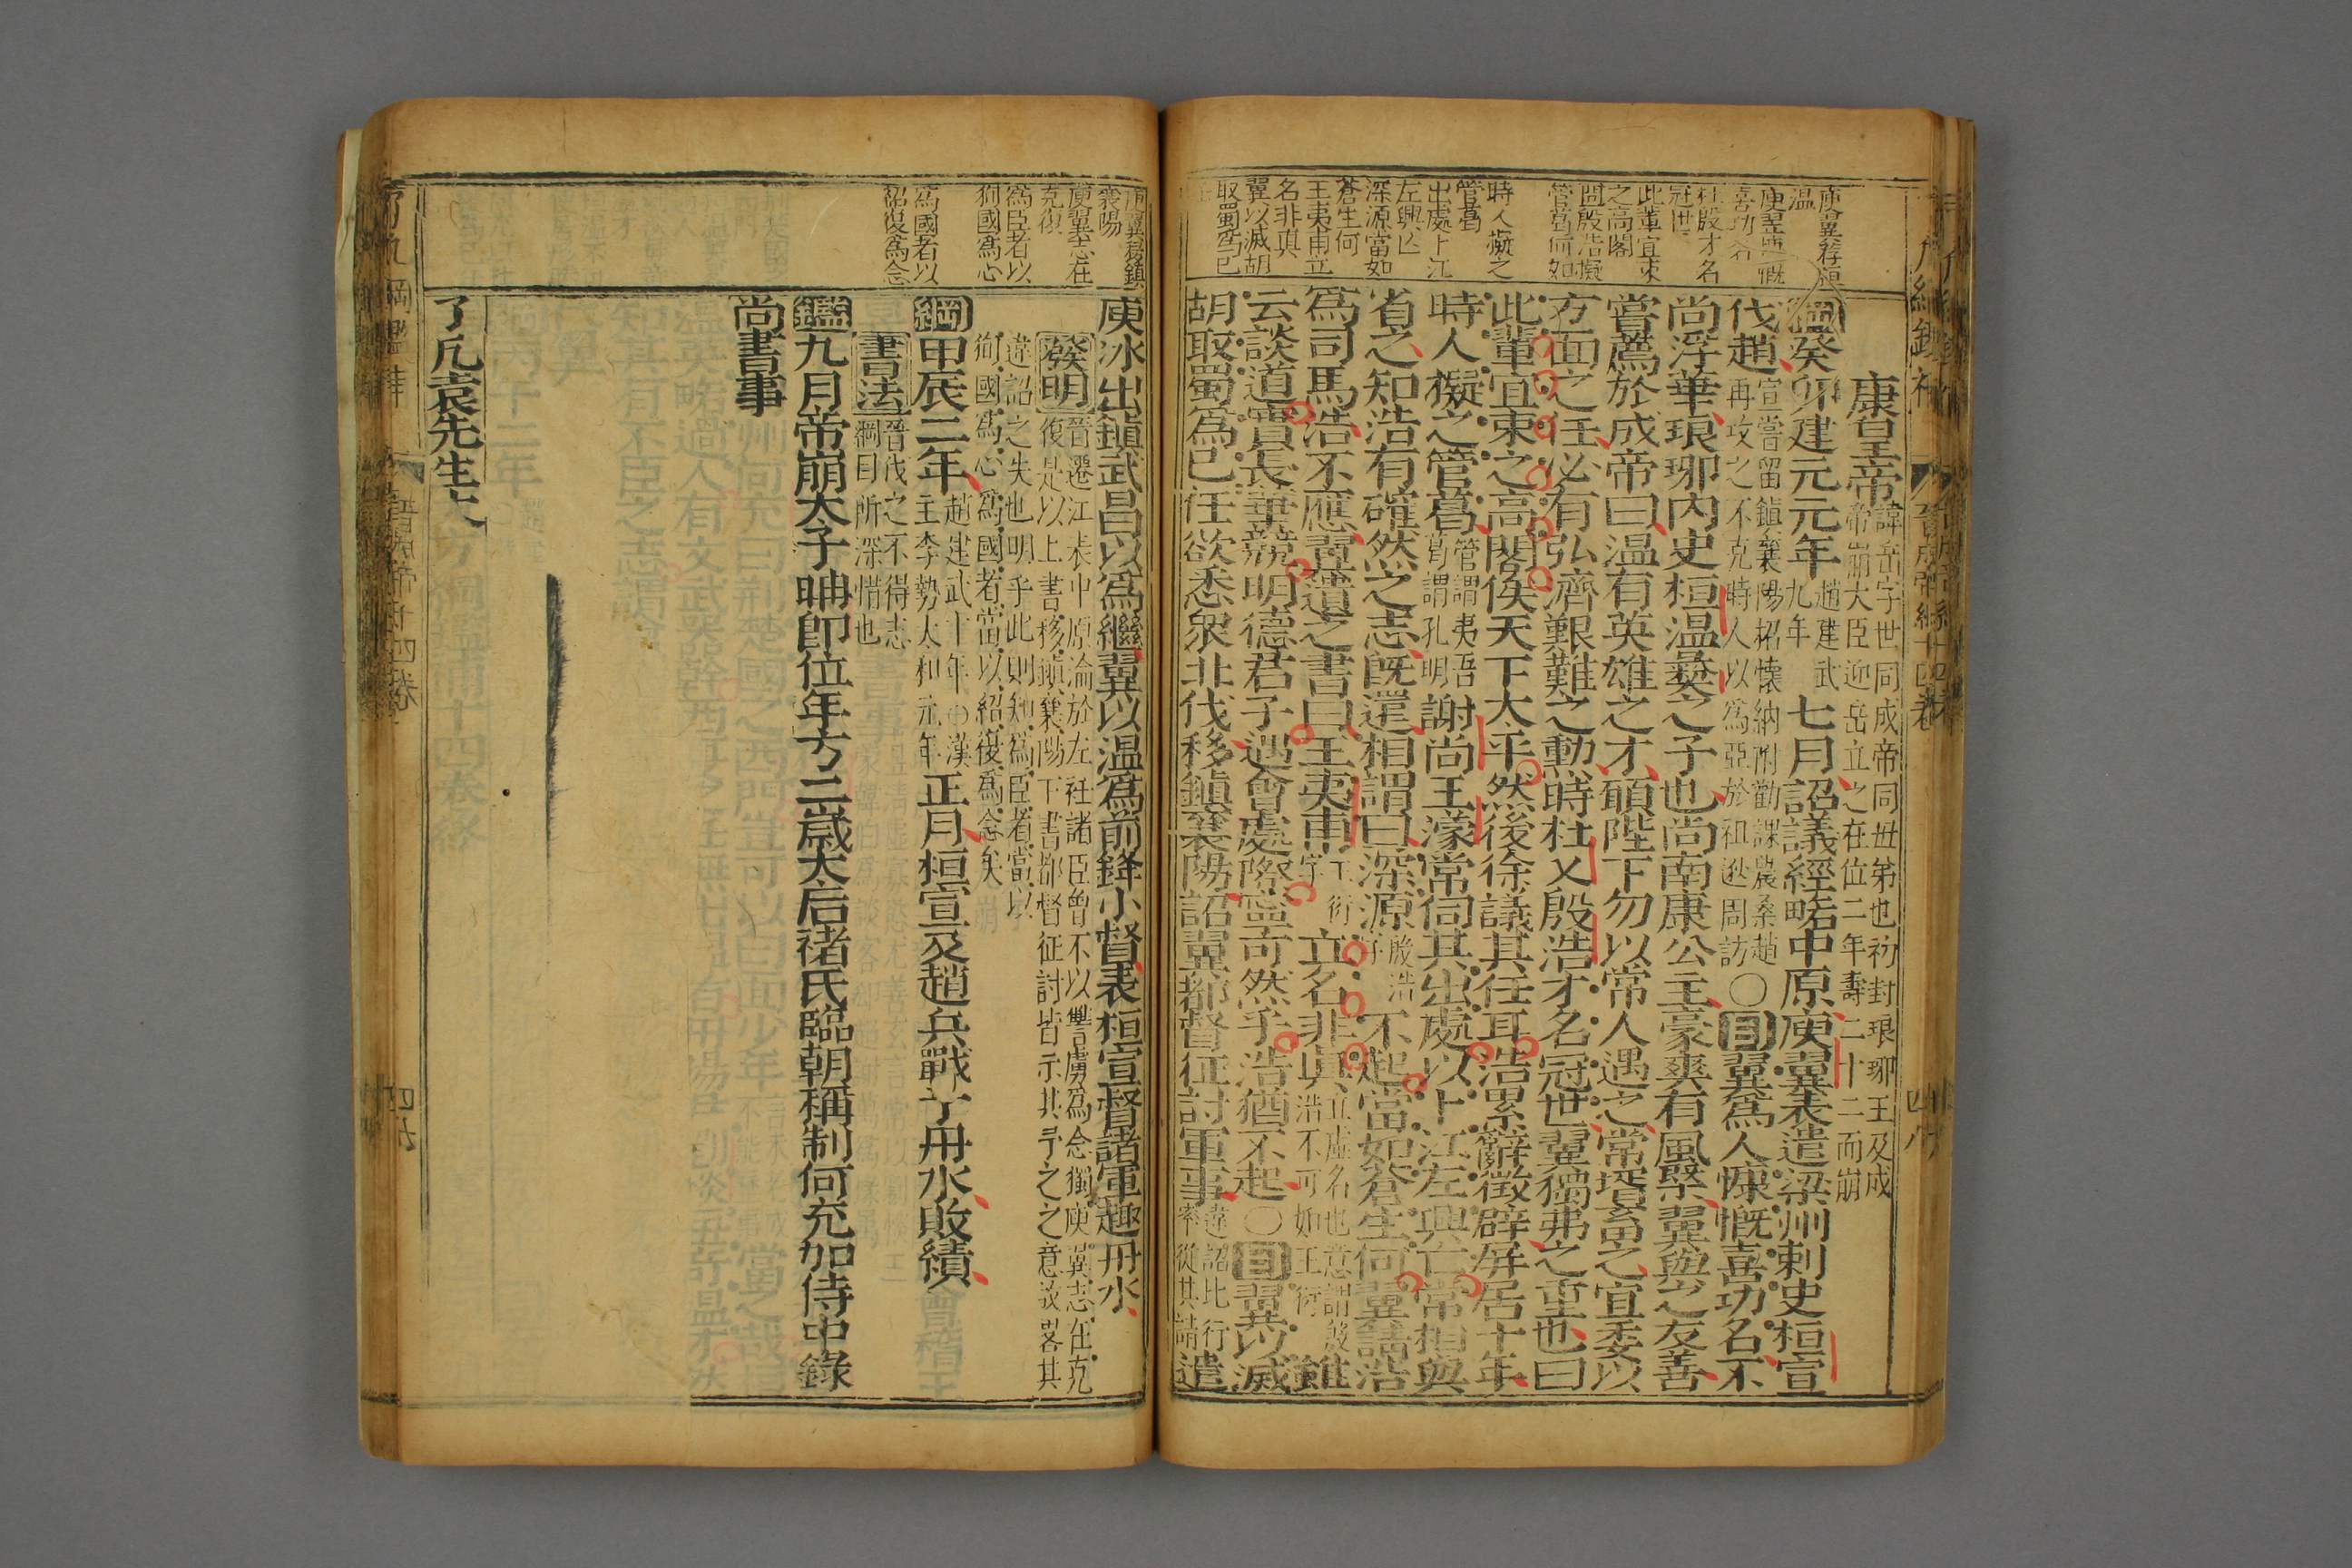 康皇帝諱岳字世同成帝同母弟也初封琅琊王及成
帝崩大臣迎岳立之在位二年壽二十二而崩
綱癸卯建元元年趙建武九年七月詔議經略中原庾翼表遣梁州刺史桓宣
伐趙宣嘗留鎮襄陽招懷納附勸課農桑趙再攻之不克時人以為亞於祖逖周訪〇目翼為人慷慨喜功名不
尚浮華琅琊內史桓溫彝之子也尚南康公主豪爽有風槩翼與之友善
嘗薦於成帝曰溫有英雄之才願陛下勿以常人遇之常壻畜之宜委以
方面之任必有弘濟艱難之勳時杜乂殷浩才名冠世翼獨弗之重也曰
此輩宜束之高閣俟天下太平然後徐議其任耳浩累辭徵辟屏居十年
時人擬之管葛管謂夷吾葛謂孔明謝尚王濛常伺其出處以卜江左興亡常相與
省之知浩有確然之志旣還相謂曰深源殷浩字不起當如蒼生何翼請浩
為司馬浩不應翼遺之書曰王夷甫王衍字立名非真立虛名也意謂殷浩不可如王衍雖
云談道實長華競明德君子遇會處際寧可然乎浩猶不起〇目翼以滅
胡取蜀為己任欲悉衆北伐移鎮襄陽詔翼都督征討軍事違詔北行率從其請遣
庾翼薦桓
溫
庾翼慷慨
喜功名
杜殷才名
冠世
此輩宜束
之高閣
殷浩擬
管葛何如
時人擬之
管葛
出處卜江
左興亡
深源當如
蒼生何
王夷甫立
名非真
翼以滅胡
取蜀為己
任
晉康帝紀十四卷
四八
庾冰出鎮武昌以為繼翼以溫為前鋒小督表桓宣督諸軍趣丹水
發明晉遷江表中原淪於左社諸臣曾不以讐虜為念獨庾翼志在克
復是以上書移鎮襄陽下書都督征討皆示其予之之意故畧其
違詔之失也明乎此則知為臣者當以
徇國為心為國者當以紹復為念矣
綱甲辰二年趙建武十年漢主李勢太和元年正月桓宣及趙兵戰于丹水敗績
書法晉伐之不得志
綱目所深惜也
鑑九月帝崩太子聃卽位年方二歲太后褚氏臨朝稱制何充加侍中錄
尚書事
庾翼移鎮
襄陽
庾翼志在
克復
為臣者以
狥國為心
為國者以
紹復為念
了凡袁先生